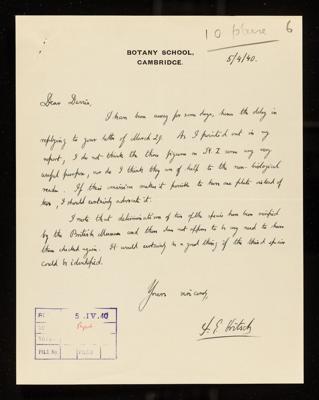 10 plaice 6
BOTANY SCHOOL,
CAMBRIDGE.
5/4/40.
Dear Darwin,
I have been away for some days, hence the delay in
replying to your letter of March 29. As I pointed out in my
report, I do not think the three figures in Pl. I serve any very
useful purpose, nor do I think they are of help to the non-biological
reader. If their omission makes it possible to have one plate instead of
two, I should certainly advocate it.
I note that determinations of two of the species have been verified
by the British Museum and there does not appear to be any need to have
them checked again. It would certainly be a good thing if the third species
could be identified.
Yours sincerely,
5 .IV.40
FILE No.